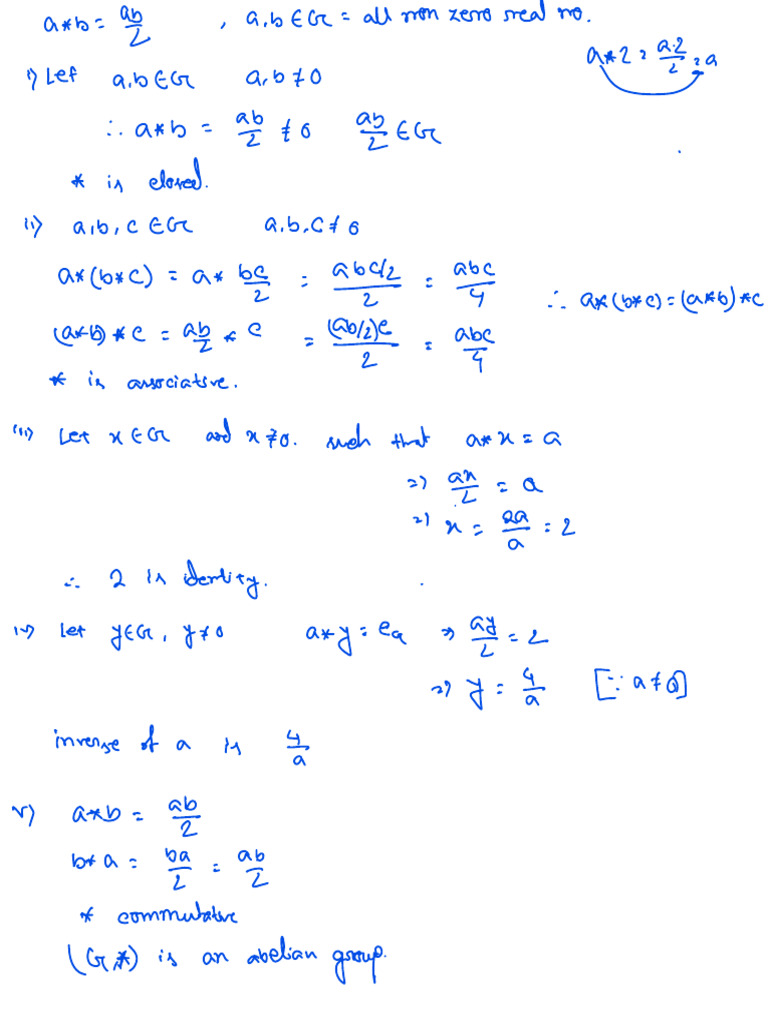 a*b = ab/2 , a,b ∈ G = all non zero real no.
a*2 = a.2/2 = a
i) Let a,b ∈ G a,b ≠ 0
∴ a*b = ab/2 ≠ 0 ab/2 ∈ G
* is closed.
ii) a,b,c ∈ G a,b,c ≠ 0
a*(b*c) = a* bc/2 = abc/2/2 = abc/4
∴ a*(b*c) = (a*b)*c
(a*b)*c = ab/2 * c = (ab/2)c/2 = abc/4
* is associative.
iii) Let x ∈ G and x ≠ 0. such that a*x = a
=> ax/2 = a
=> x = 2a/a = 2
∴ 2 is identity.
iv) let y ∈ G, y ≠ 0 a*y = ea => ay/2 = 2
=> y = 4/a [∵ a ≠ 0]
inverse of a is 4/a
v) a*b = ab/2
b*a = ba/2 = ab/2
* commutative
(G,*) is an abelian group.